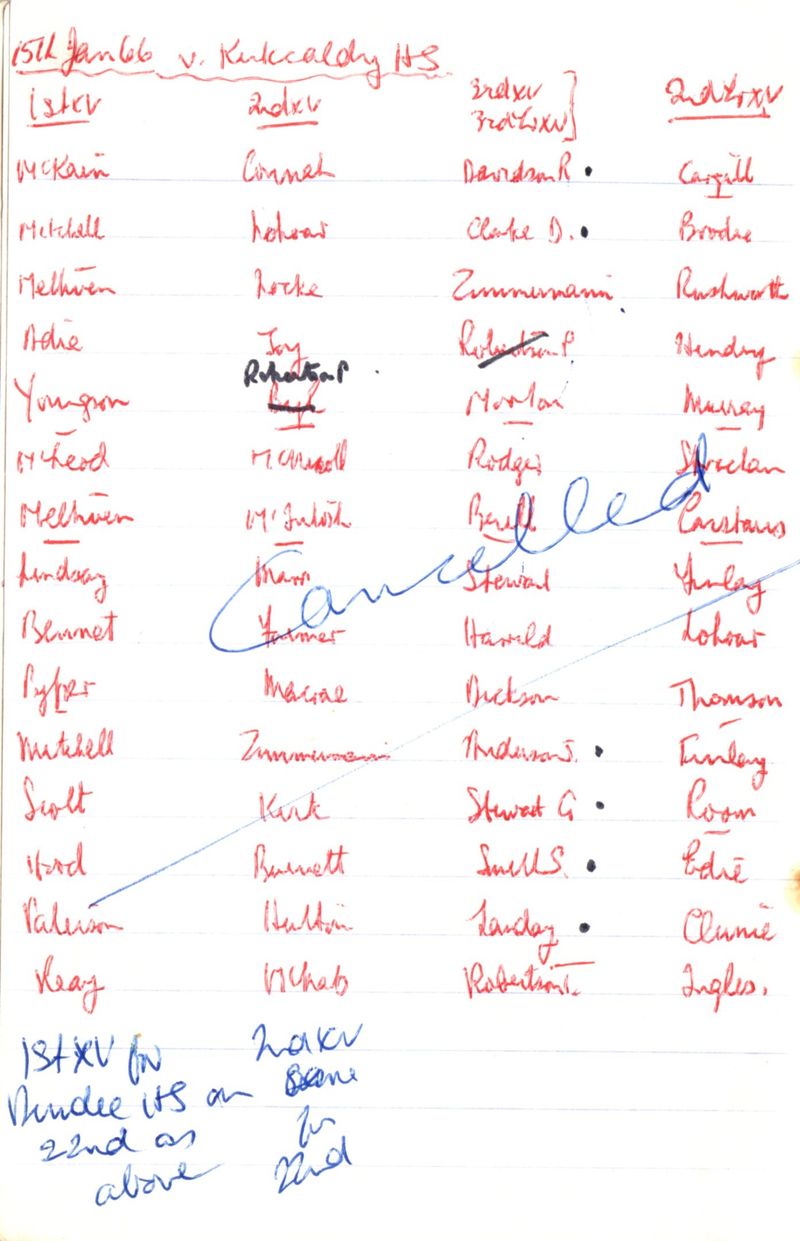 15th Jan 66 v. Kirkcaldy HS
1st XV 2nd XV 3rd XV 2nd Yr XV
3rd Yr XV
McKain Connah Davidson R • Cargill
Mitchell Lohoar Clarke D. • Brodie
Methven Locke Zimmermann Rushworth
Adie Joy Robertson P Hendry
Robertson P
Youngson Morton Murray
McLeod McNicoll Rodger Strachan
Methven McIntosh Berill Carstairs
Lindsay Marr Stewart Finlay
Bennet Farmer Harold Lohoar
Pyper Macrae Dickson Thomson
Mitchell Zimmermann Anderson J. • Finlay
Scott Kirk Stewart G • Room
Hood Burnett Snell S. • Edie
Paterson Hutton • Clunie
Reay McNab Robertson T. Ingles.
Cancelled
1st XV for
Dundee HS on
22nd as
above
2nd XV
Same
for
22nd